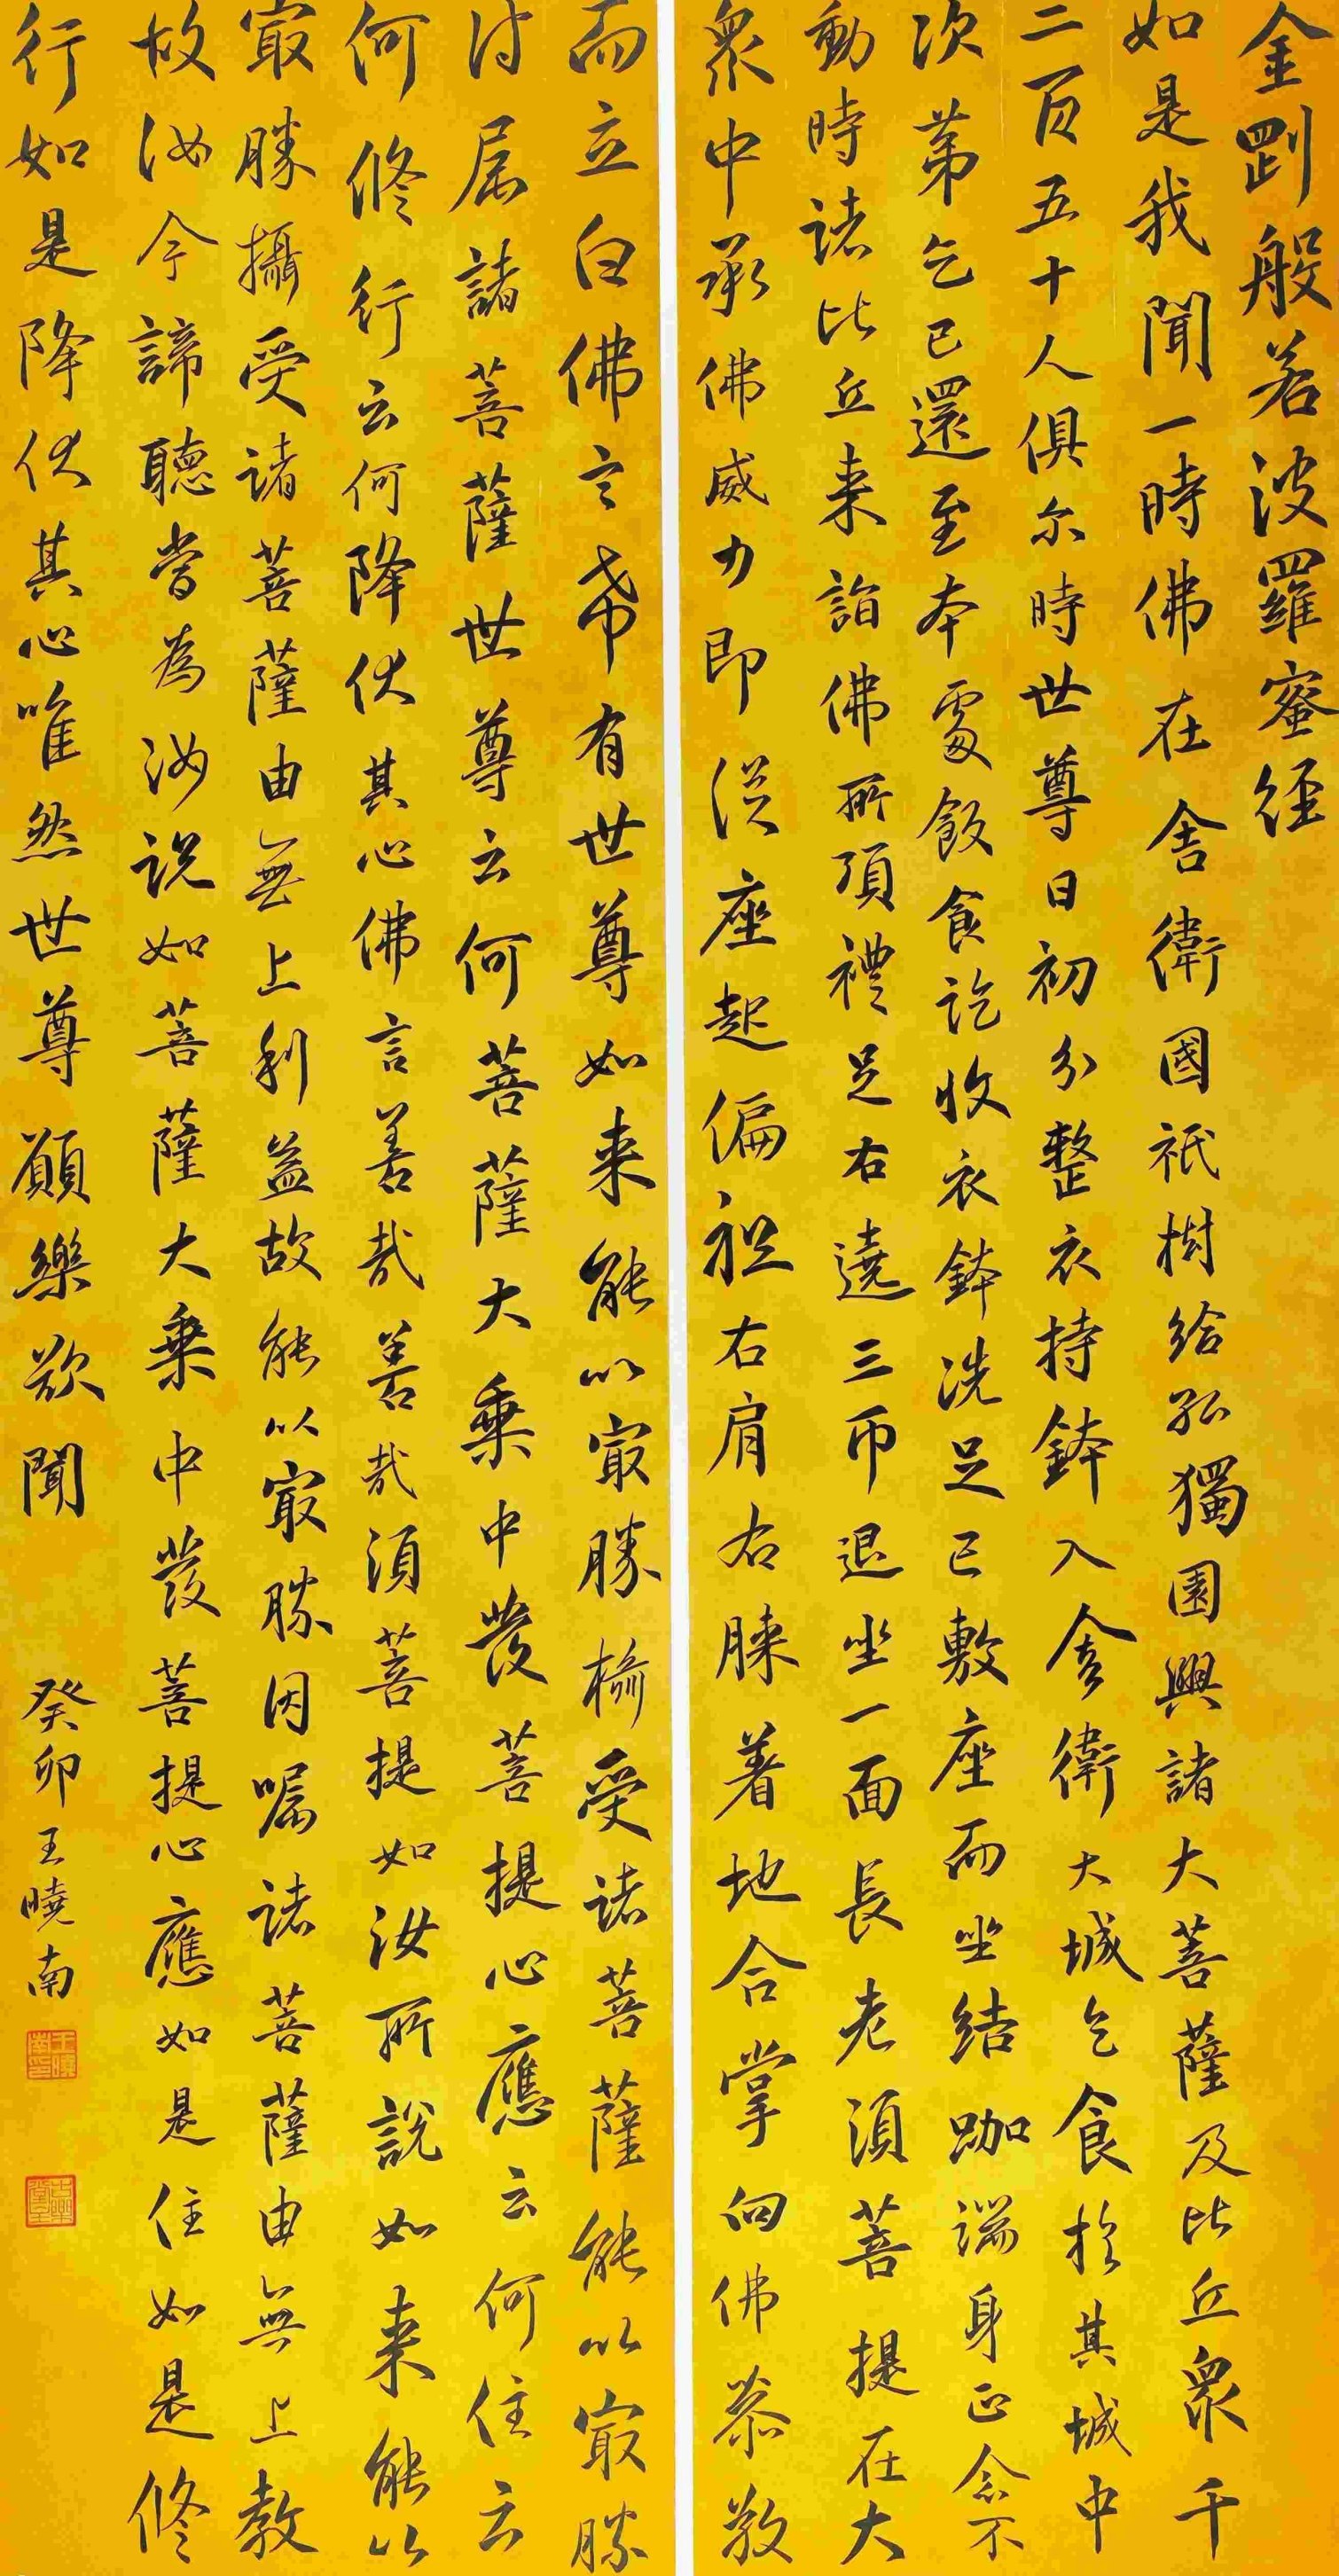 金剛般若波羅蜜経
如是我聞一時佛在舎衛國祇樹給孤獨園與諸大菩薩及比丘衆千
二百五十人俱尔時世尊日初分整衣持鉢入舎衛大城乞食於其城中
次第乞已還至本處飯食訖收衣鉢洗足已敷座而坐結跏端身正念不
動時諸比丘来詣佛所頂禮足右遶三帀退坐一面長老須菩提在大
衆中承佛威力即從座起偏袒右肩右膝着地合掌向佛恭敬
而立白佛言希有世尊如来能以冣勝揄受諸菩薩能以冣勝
付属諸菩薩世尊云何菩薩大乗中發菩提心應云何住云
何修行云何降伏其心佛言善哉善哉須菩提如汝所說如来能以
冣勝攝受諸菩薩由無上利益故能以冣勝因嘱諸菩薩由無上教
故汝今諦聽當為汝説如菩薩大乗中發菩提心應如是住如是修
行如是降伏其心唯然世尊願樂欲聞
癸卯王曉南